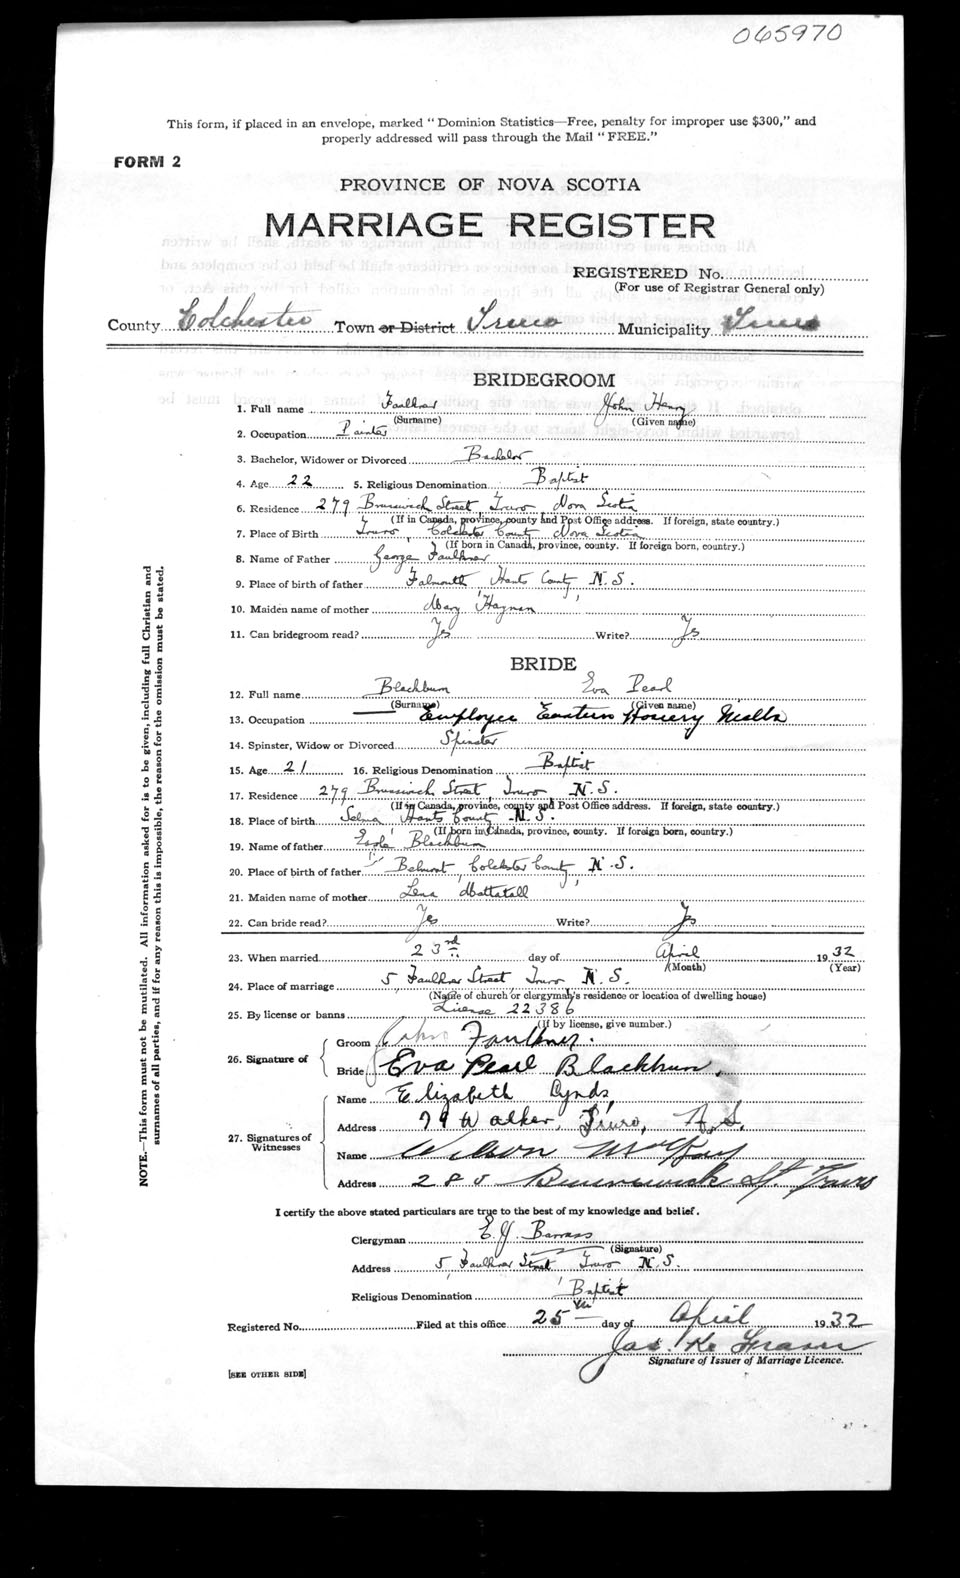 065970
This form, if placed in an envelope, marked "Dominion Statistics—Free, penalty for improper use $300," and
properly addressed will pass through the Mail "FREE."
FORM 2
PROVINCE OF NOVA SCOTIA
MARRIAGE REGISTER
REGISTERED No.
(For use of Registrar General only)
County Colchester Town or District Truro Municipality Truro
BRIDEGROOM
1. Full name Faulkner John Henry
(Surname) (Given name)
2. Occupation Painter
3. Bachelor, Widower or Divorced Bachelor
4. Age 22 5. Religious Denomination Baptist
6. Residence 279 Brunswick Street Truro Nova Scotia
(If in Canada, province, county and Post Office address. If foreign, state country.)
7. Place of Birth Truro Colchester County Nova Scotia
(If born in Canada, province, county. If foreign born, country.)
8. Name of Father George Faulkner
9. Place of birth of father Falmouth, Hants County, N.S.
10. Maiden name of mother Mary Hayman
11. Can bridegroom read? Yes Write? Yes
BRIDE
12. Full name Blackburn Eva Pearl
(Surname) (Given name)
13. Occupation Employee Eastern Hosiery Mills
14. Spinster, Widow or Divorced Spinster
15. Age 21 16. Religious Denomination Baptist
17. Residence 279 Brunswick Street Truro N.S.
(If in Canada, province, county and Post Office address. If foreign, state country.)
18. Place of birth Selma Hants County N.S.
(If born in Canada, province, county. If foreign born, country.)
19. Name of father Blackburn
20. Place of birth of father Belmont, Colchester County, N.S.
21. Maiden name of mother Lena Mattatall
22. Can bride read? Yes Write? Yes
23. When married 23rd day of April 1932
(Month) (Year)
24. Place of marriage 5 Faulkner Street Truro N.S.
(Name of church or clergyman's residence or location of dwelling house)
25. By license or banns License 22386
(If by license, give number.)
26. Signature of
Groom John Faulkner.
Bride Eva Pearl Blackburn.
27. Signatures of Witnesses
Name Elizabeth Lynds,
Address 79 Walker, Truro, N.S.
Name Wilson
Address 285 Brunswick St. Truro
I certify the above stated particulars are true to the best of my knowledge and belief.
Clergyman E. J. Barrass
(Signature)
Address 5 Faulkner Street Truro N.S.
Religious Denomination Baptist
Registered No. Filed at this office 25th day of April 1932
Jas. K. Fraser
Signature of Issuer of Marriage Licence.
[SEE OTHER SIDE]
NOTE.—This form must not be mutilated. All information asked for is to be given, including full Christian and
surnames of all parties, and if for any reason this is impossible, the reason for the omission must be stated.